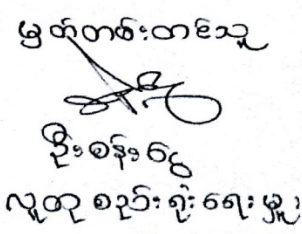 မှတ်တမ်းတင်သူ
ဦးစန်းငွေ
လူထုစည်းရုံးရေးမှူး